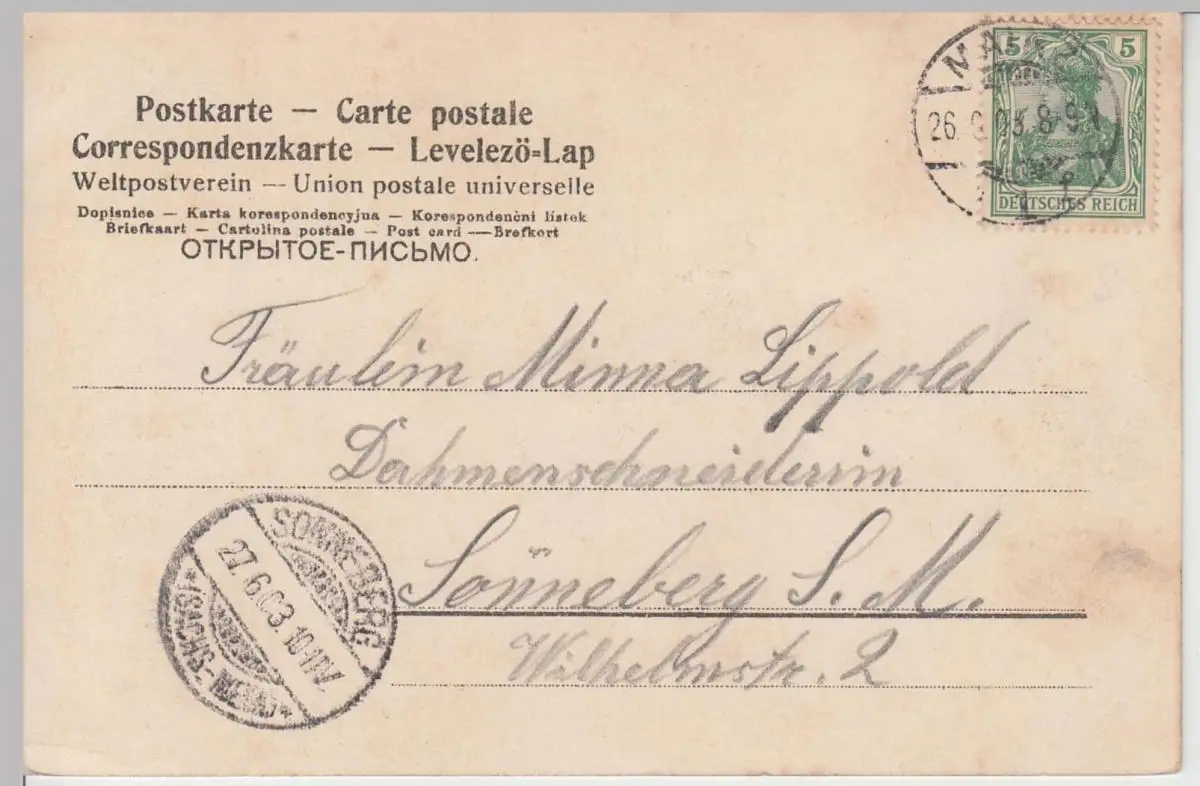 Postkarte — Carte postale
Correspondenzkarte — Levelezö-Lap
Weltpostverein — Union postale universelle
Dopisnice — Karta korespondencyjna — Korespondenční lístek
Briefkaart — Cartolina postale — Post card — Brefkort
ОТКРЫТОЕ-ПИСЬМО.
5 5
DEUTSCHES REICH
26. 6. 03. 8-9
Fräulein Minna Lippold
Dahmenschneiderin
Sonneberg S. M.
Wilhelmstr. 2
SONNEBERG
27. 6. 03. 10-11V.
*(SACHS-MEIN.)*